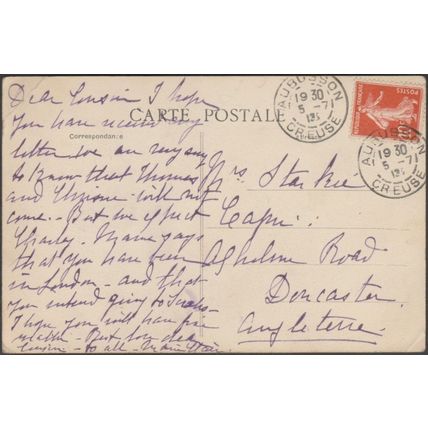 CARTE POSTALE
Correspondance
Dear Cousin I hope
you have received my
letter we are very sorry
to know that Thomas
and will not
come. But we expect
Charley. Marie says
that you have been
in London - and that
you intend going to
I hope you will have fine
weather - Best love dear
cousin - to all -
Mrs. Starkie
Capri
Road
Doncaster
Angleterre
AUBUSSON
19 30
5 - 7
13
CREUSE
AUBUSSON
19 30
5 - 7
13
CREUSE
POSTES
10c